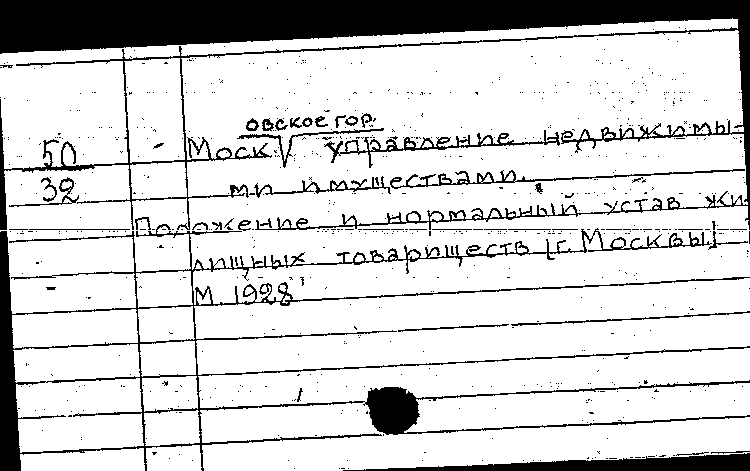 50
32
овское гор.
Моск√ управление недвижимы-
ми имуществами.
Положение и нормальный устав жи-
лищных товариществ [г. Москвы]
М. 1928